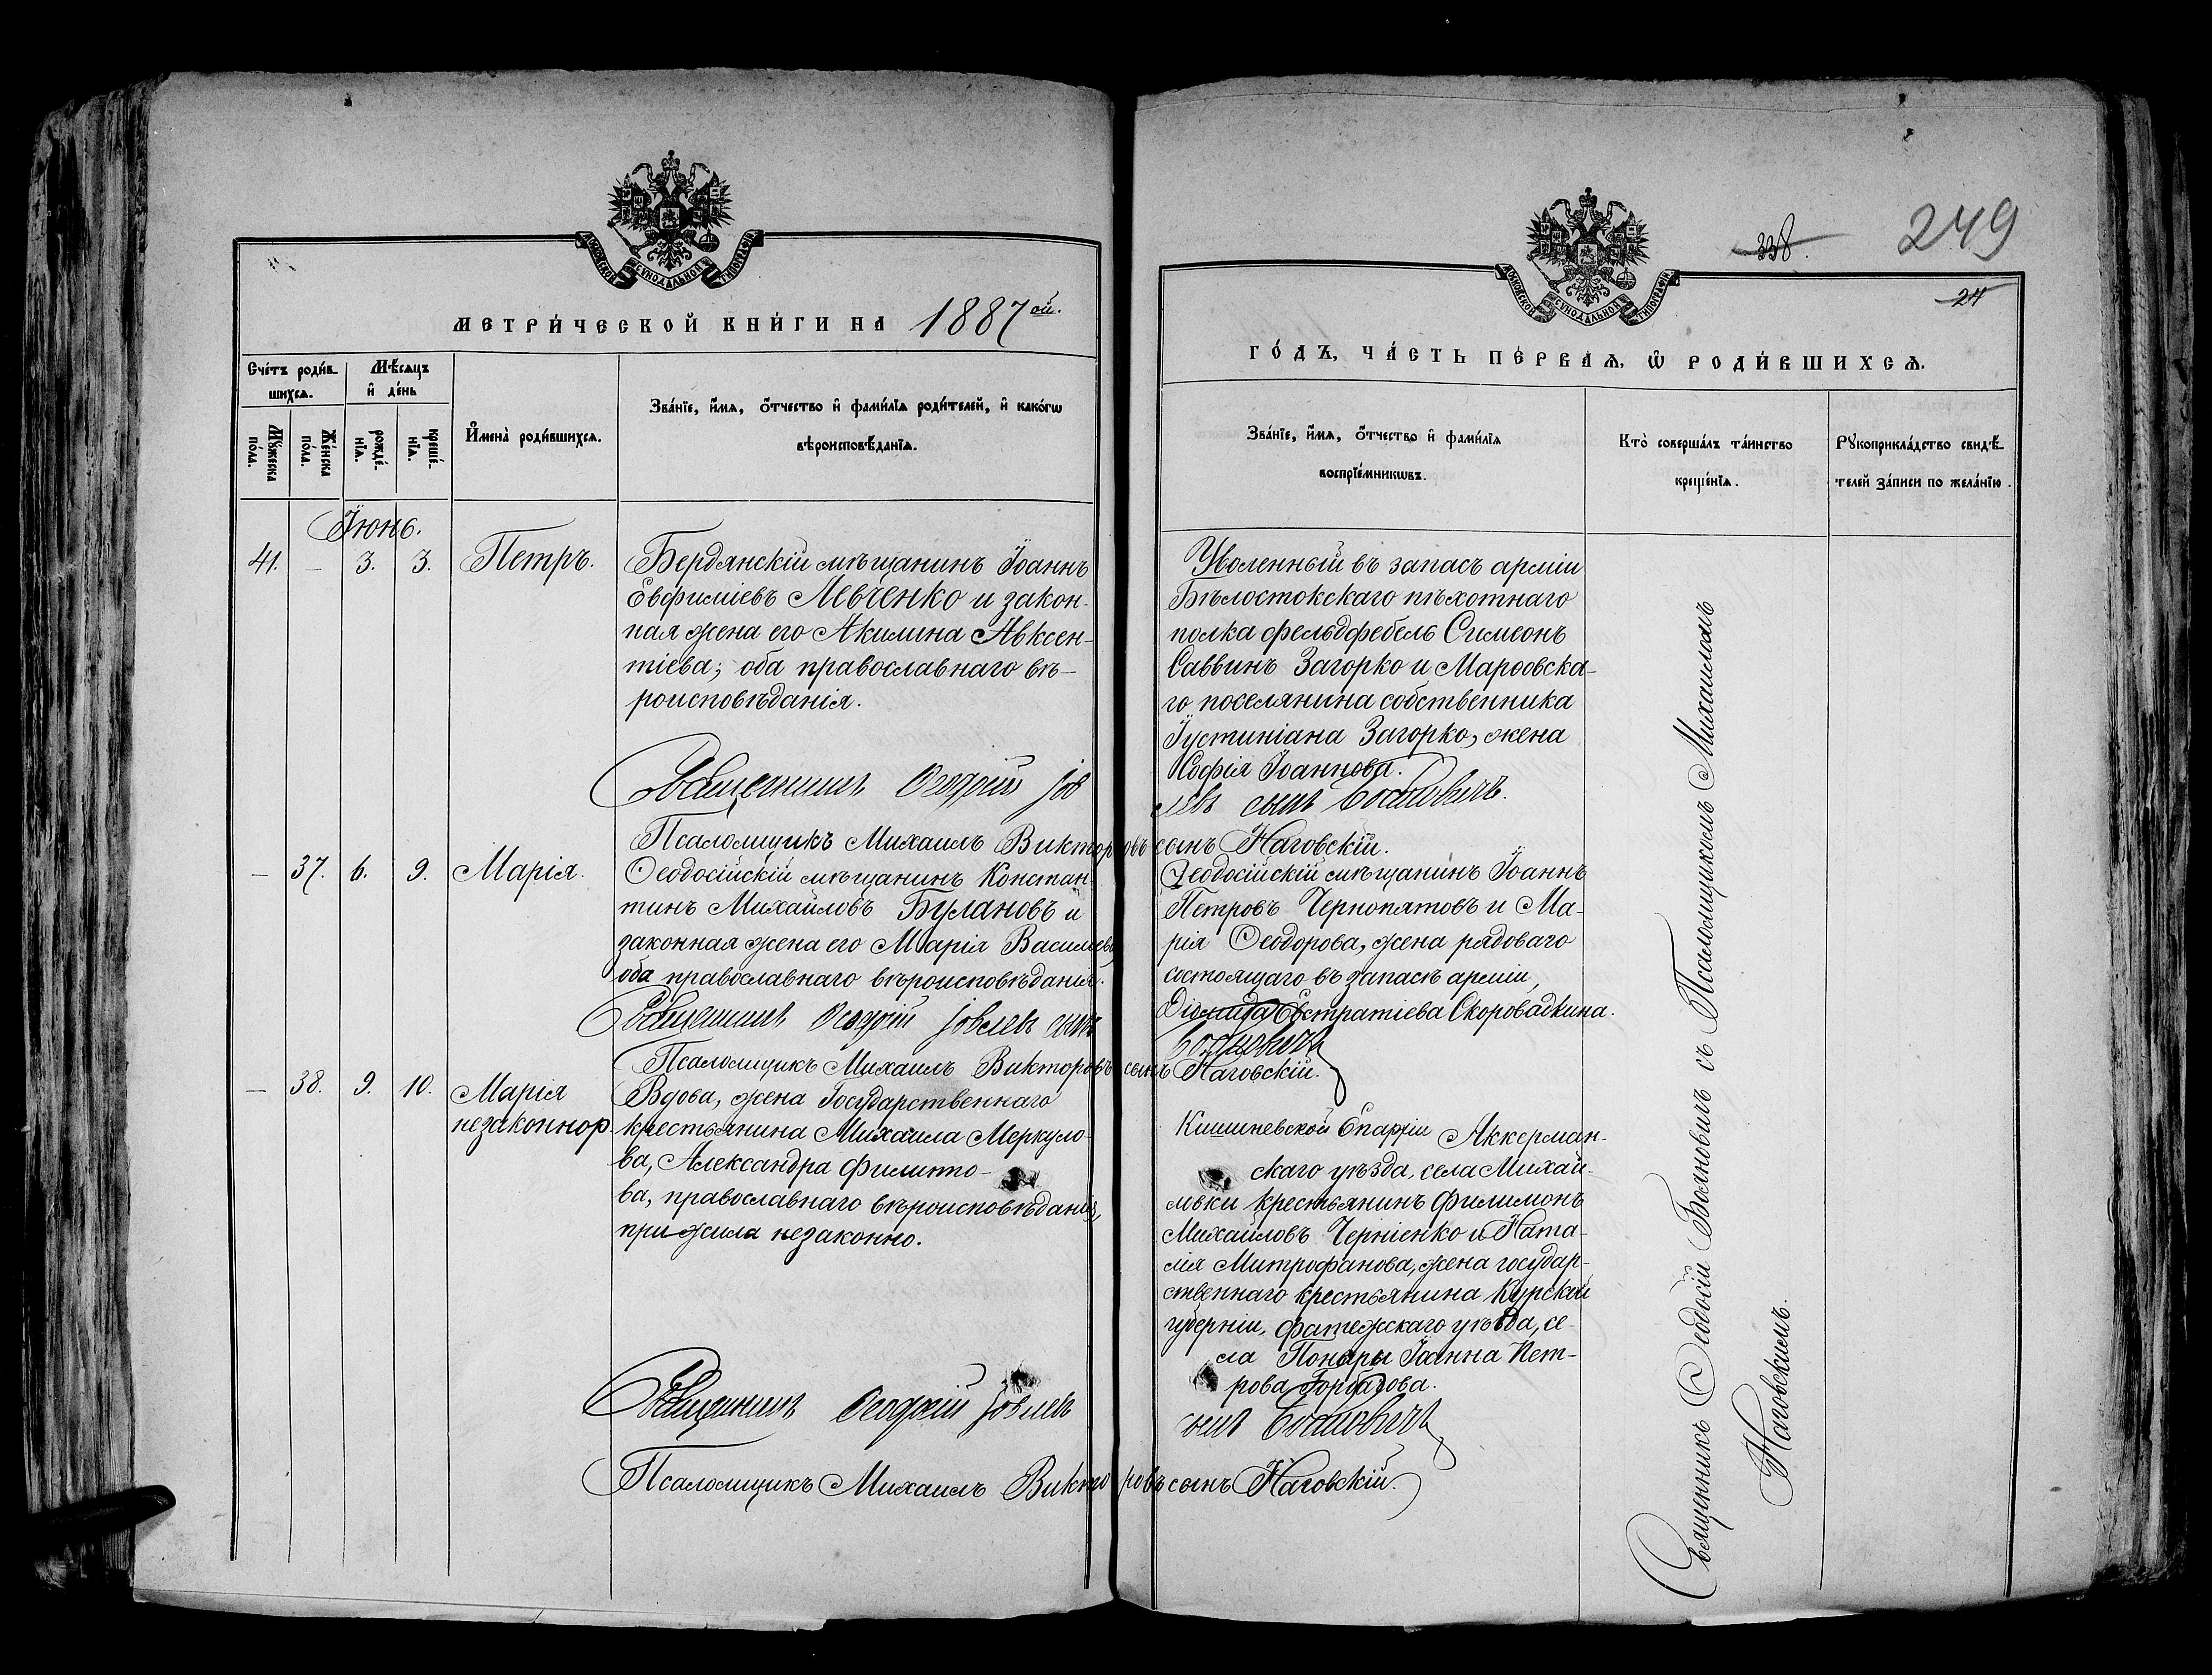 МОСКОВСКОЙ СѴНОДАЛЬНОЙ ТИПОГРАФІИ
МЕТРИ́ЧЕСКОЙ КНИ́ГИ НА 1887ой.
Сче́тъ роди́в-
шихсѧ.
Мѣ́сѧцъ
и҆ де́нь
Мꙋ́жеска
по́ла.
Же́нска
по́ла.
рожде́-
нїѧ.
креще́-
нїѧ.
И҆мена̀ роди́вшихсѧ.
Зва́нїе, и҆́мѧ, ѻ҆́тчество и҆ фами́лїѧ роди́телей, и҆ како́гѡ
вѣроисповѣ́данїѧ.
Іюнь.
41. — 3. 3. Петръ.
Бердянскій мѣщанинъ Іоаннъ
Евфиміевъ Левченко и закон-
ная жена его Акилина Авксен-
тіева; оба православнаго вѣ-
роисповѣданія.
Священникъ Ѳеодосій Іов
Псаломщикъ Михаилъ Викторовъ
— 37. 6. 9. Марія.
Ѳеодосійскій мѣщанинъ Констан-
тинъ Михайловъ Булановъ и
законная жена его Марія Васильева
оба православнаго вѣроисповѣданія.
Священникъ Ѳеодосій Іовлевъ сынъ
Псаломщикъ Михаилъ Викторовъ
— 38. 9. 10. Марія
незаконнор.
Вдова, жена Государственнаго
крестьянина Михаила Меркуло-
ва, Александра Филиппо-
ва, православнаго вѣроисповѣданія,
прижила незаконно.
Священникъ Ѳеодосій Іовлевъ
Псаломщикъ Михаилъ Викто
338.
249
24
МОСКОВСКОЙ СѴНОДАЛЬНОЙ ТИПОГРАФІИ
ГО́ДЪ, ЧА́СТЬ ПЕ́РВАѦ, Ѽ РОДИ́ВШИХСѦ.
Зва́нїе, и҆́мѧ, ѻ҆́тчество и҆ фами́лїѧ
воспрїе́мникѡвъ.
Кто̀ соверша́лъ та́инство
креще́нїѧ.
Рꙋкоприкла́дство свидѣ́-
телей за́писи по жела́нїю.
Уволенный въ запасъ арміи
Бѣлостокскаго пѣхотнаго
полка фельдфебель Симеонъ
Саввинъ Загорко и Марѳовска-
го поселянина собственника
Іустиніана Загорко, жена
Софія Іоаннова.
левъ сынъ
сынъ Наговскій.
Ѳеодосійскій мѣщанинъ Іоаннъ
Петровъ Чернопятовъ и Ма-
рія Ѳеодорова, жена рядоваго
состоящаго въ запасѣ арміи,
Діомида Евстратіева Скоровадкина.
сынъ Наговскій.
Кишиневской Епархіи Аккерман-
скаго уѣзда, села Михай-
ловки крестьянинъ Филимонъ
Михайловъ Черніенко и Ната-
лія Митрофанова, жена государ-
ственнаго крестьянина Курской
губерніи, Фатежскаго уѣзда, се-
ла Поныры Іоанна Пет-
рова Горбатова.
сынъ
ровъ сынъ Наговскій.
Священникъ Ѳеодосій Баяновичъ съ Псаломщикомъ Михаиломъ
Наговскимъ.